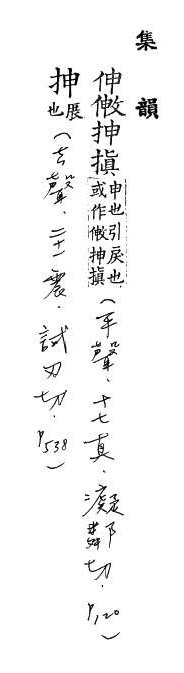 集韻
伸㑗抻搷申也引戾也或作㑗抻搷（平聲．十七真．癡鄰切．P120）
抻展也（去聲．二十一震．試刃切．P538）